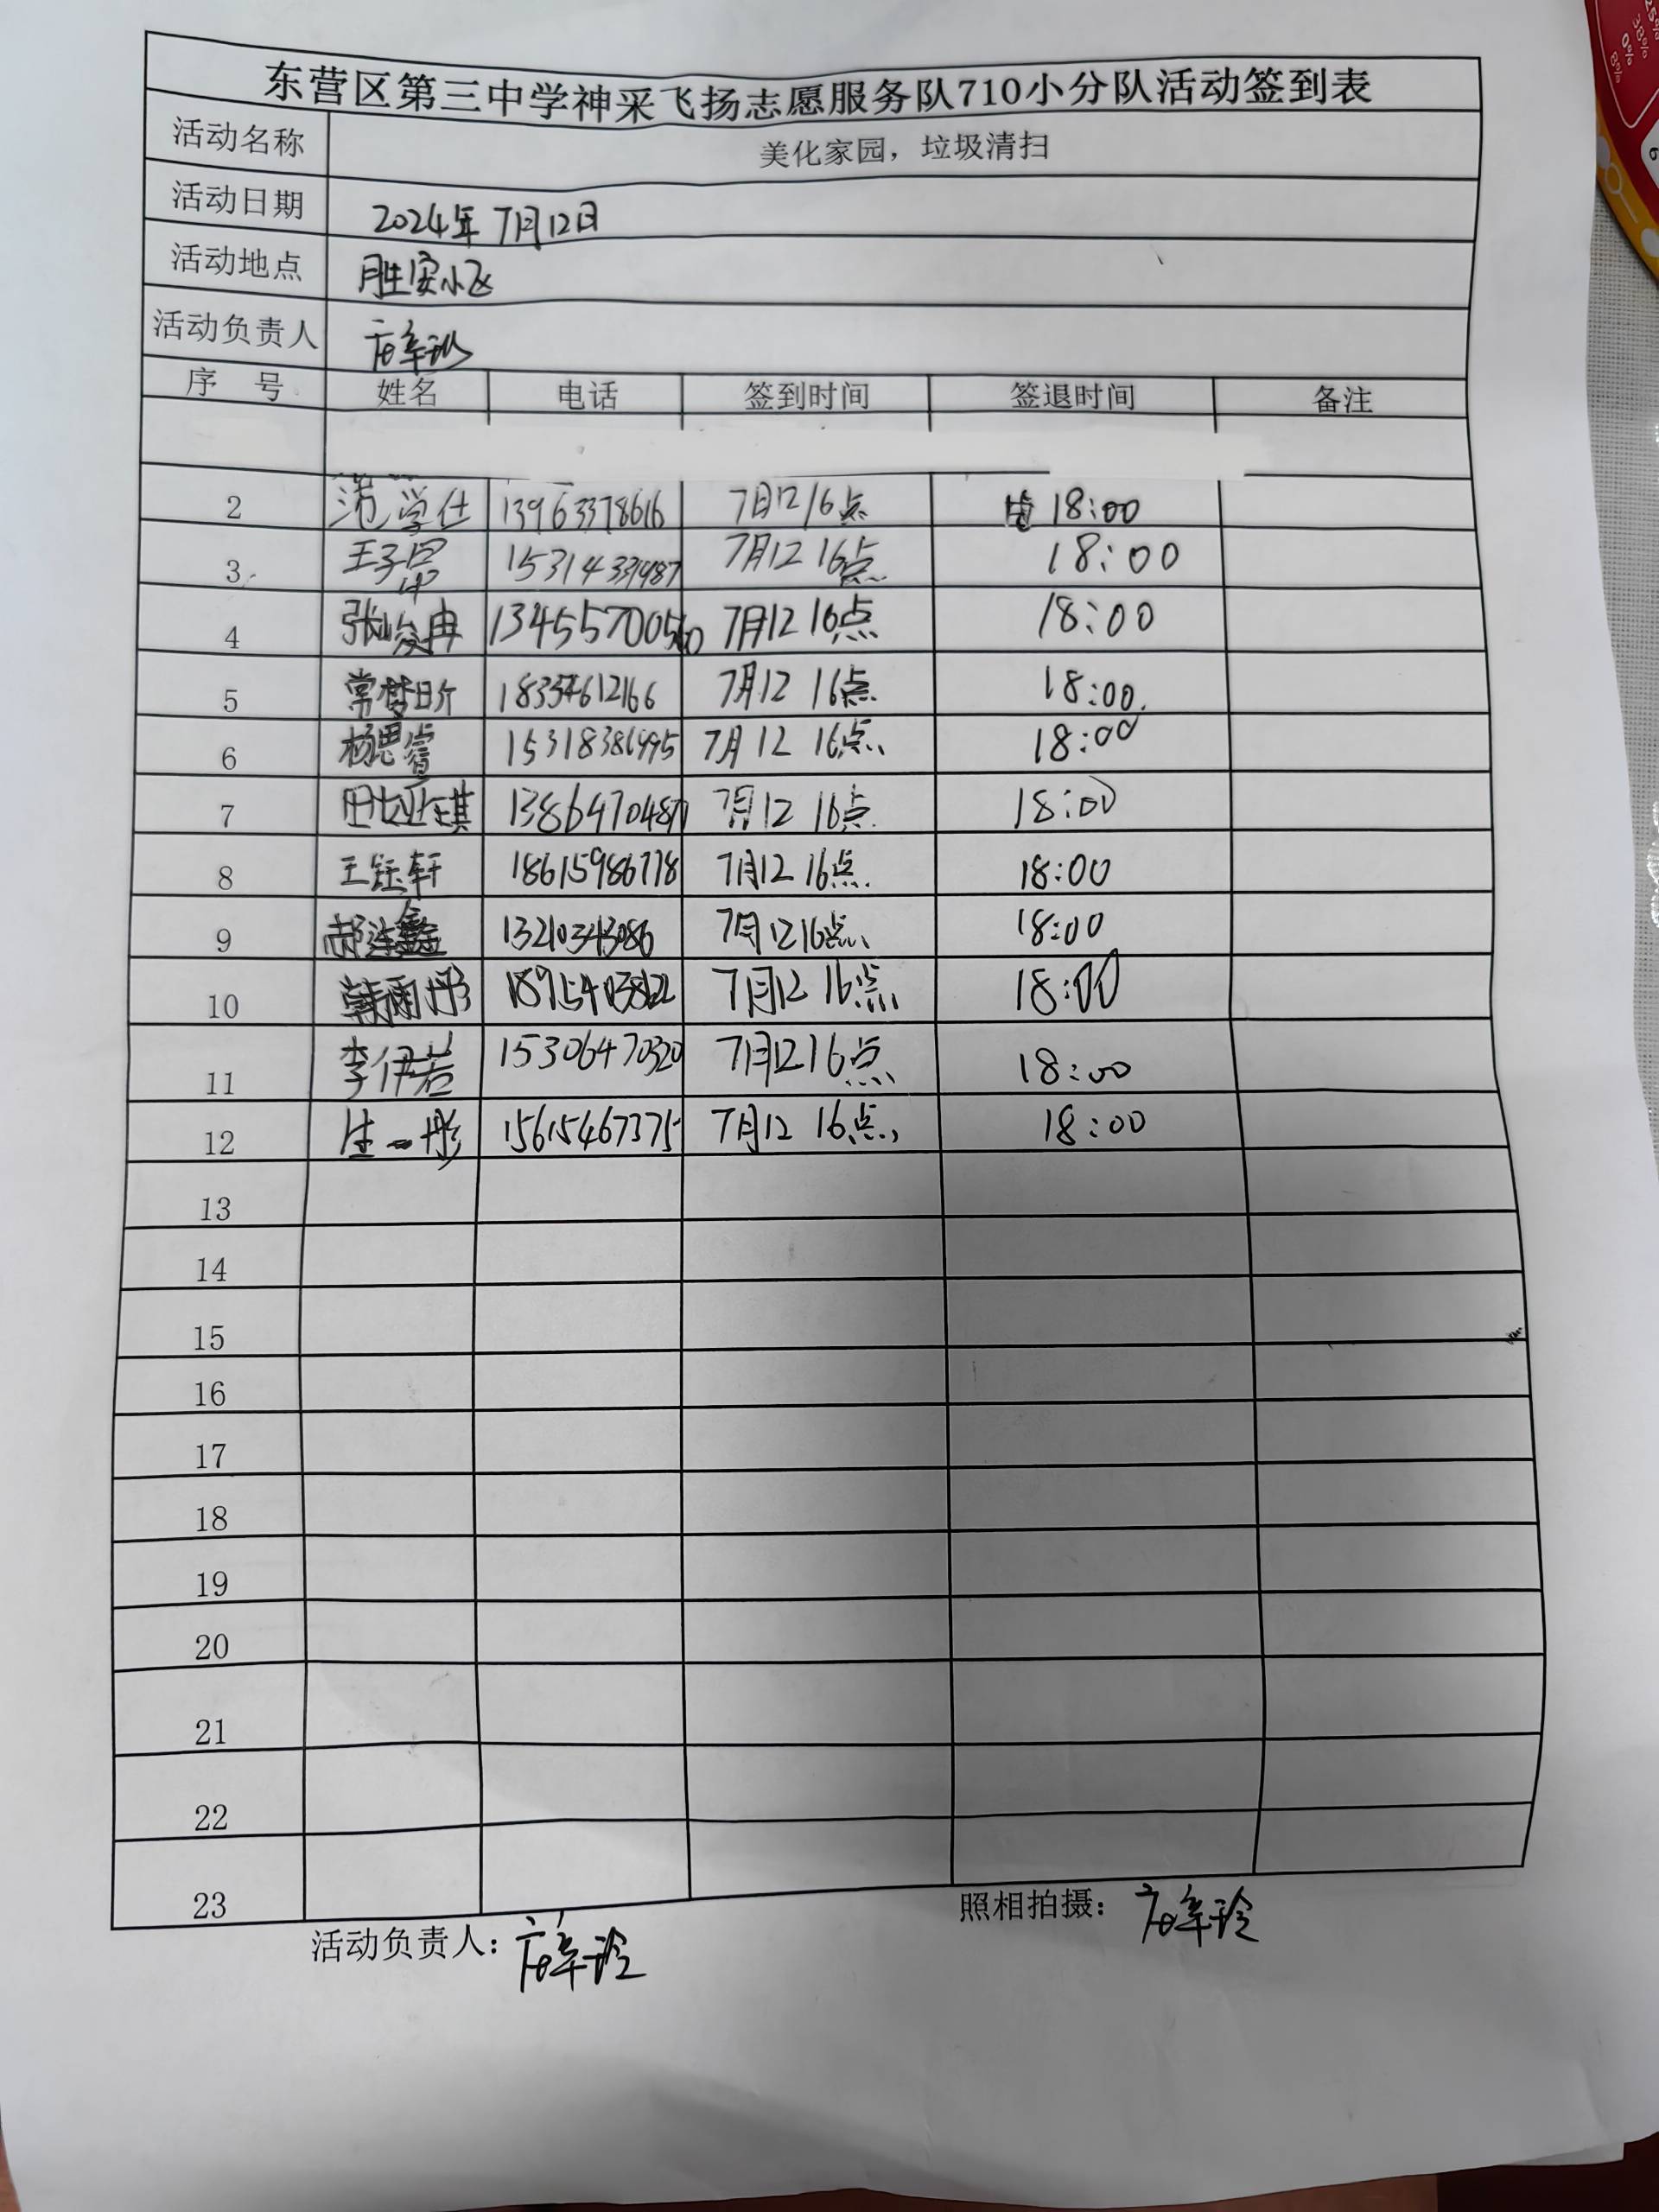 东营区第三中学神采飞扬志愿服务队710小分队活动签到表
活动名称 美化家园，垃圾清扫
活动日期 2024年7月12日
活动地点 胜安小区
活动负责人
序 号 姓名 电话 签到时间 签退时间 备注
2 范学仕 13963378616 7月12 16点 18:00
3 7月12 16点 18:00
4 张峻冉 7月12 16点 18:00
5 7月12 16点 18:00
6 杨思睿 7月12 16点 18:00
7 7月12 16点 18:00
8 王钰轩 18615986778 7月12 16点 18:00
9 郝连鑫 7月12 16点 18:00
10 韩雨彤 7月12 16点 18:00
11 李伊若 15306470320 7月12 16点 18:00
12 生一彤 15615467375 7月12 16点 18:00
13
14
15
16
17
18
19
20
21
22
23
活动负责人：
照相拍摄：